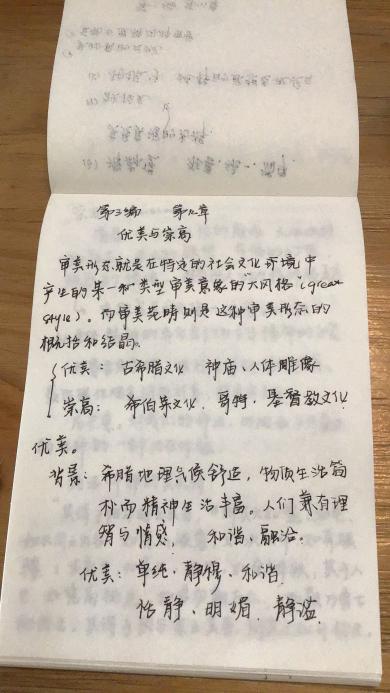 第三编 第九章
优美与崇高
审美形态就是在特定的社会文化环境中
产生的某一种类型审美意象的"大风格"(great
style)。而审美范畴则是这种审美形态的
概括和结晶。
优美: 古希腊文化 神庙、人体雕像
崇高: 希伯来文化、哥特、基督教文化
优美。
背景: 希腊地理气候舒适,物质生活简
朴而精神生活丰富。人们兼有理
智与情感, 和谐、融洽。
优美: 单纯、静穆、和谐
恬静、明媚、静谧